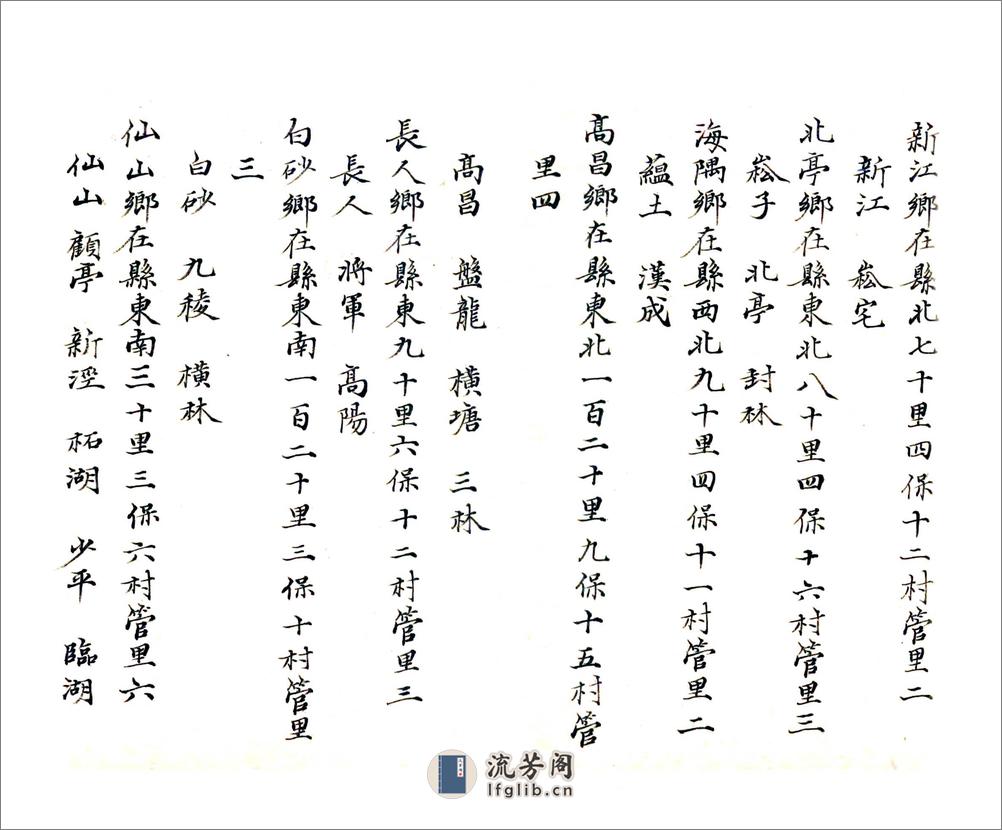 新江鄉在縣北七十里四保十二村管里二
新江 崧宅
北亭鄉在縣東北八十里四保十六村管里三
崧子 北亭 封林
海隅鄉在縣西北九十里四保十一村管里二
蘊土 漢成
髙昌鄉在縣東北一百二十里九保十五村管
里四
髙昌 盤龍 橫塘 三林
長人鄉在縣東九十里六保十二村管里三
長人 將軍 髙陽
白砂鄉在縣東南一百二十里三保十村管里
三
白砂 九稜 橫林
仙山鄉在縣東南三十里三保六村管里六
仙山 顧亭 新涇 柘湖 少平 臨湖
流芳阁
lfglib.cn